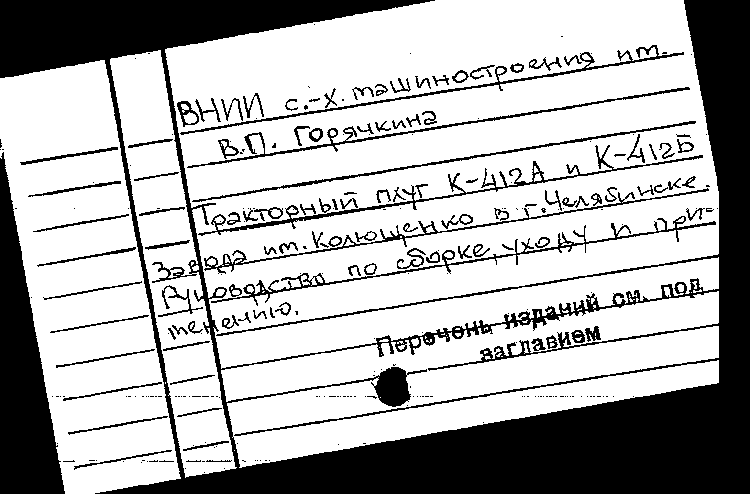 ВНИИ с.-х. машиностроения им.
В.П. Горячкина
Тракторный плуг К-412А и К-412Б
Завода им. Колющенко в г. Челябинске.
Руководство по сборке, уходу и при-
менению.
Перечень изданий см. под
заглавием